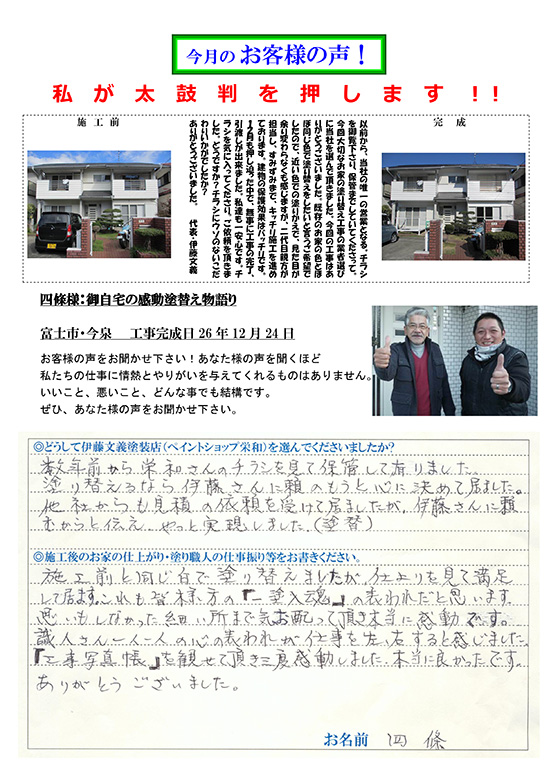 今月の お客様の声！
私が太鼓判を押します!!
施工前
以前から、当社の唯一の営業となる、チラシ
を御覧下さり、保管までしていてくださって、
今回大切なお家の塗り替え工事の業者選び
に当社を選んで頂きました。今回の工事はあ
りがとうございました。既存のお家の色とほ
ぼ同じ色で塗り替えをしたいと言うご希望で
したので、近い色での塗りかえで、見た目が
余り変わらなくも感じますが、二代目親方が
担当し、すみずみまで、キッチリ施工を進め
ております。建物の保護効果はバッチリです。
12月も押し迫った中で、無事に工事の完了、
引渡しが出来ました。私達も一安心です。チ
ラシを気に入ってくださり、ご依頼を頂きま
した。どうですか？チラシにウソのないこだ
わりいかがでしたか？
ありがとうございました。 代表・伊藤文義
完成
四條様：御自宅の感動塗替え物語り
富士市・今泉 工事完成日２６年１２月２４日
お客様の声をお聞かせ下さい！あなた様の声を聞くほど
私たちの仕事に情熱とやりがいを与えてくれるものはありません。
いいこと、悪いこと、どんな事でも結構です。
ぜひ、あなた様の声をお聞かせ下さい。
◎どうして伊藤文義塗装店（ペイントショップ栄和）を選んでくださいましたか？
数年前から栄和さんのチラシを見て保管して有りました。
塗り替えるなら伊藤さんに頼のもうと心に決めて居ました。
他社からも見積の依頼を受けて居ましたが、伊藤さんに頼
むからと伝え、やっと実現しました。（塗替）
◎施工後のお家の仕上がり・塗り職人の仕事振り等をお書きください。
施工前と同じ白で塗り替えましたが、仕上りを見て満足
して居ます。これも皆様方の『一塗入魂』の表われだと思います。
思いもしなかった細い所まで気お配って頂き本当に感動です。
識人さん一人一人の心の表われが仕事を左右すると感じました。
『工事写真帳』を観せて頂き三度感動しました。本当に良かったです。
ありがとうございました。
お名前 四條